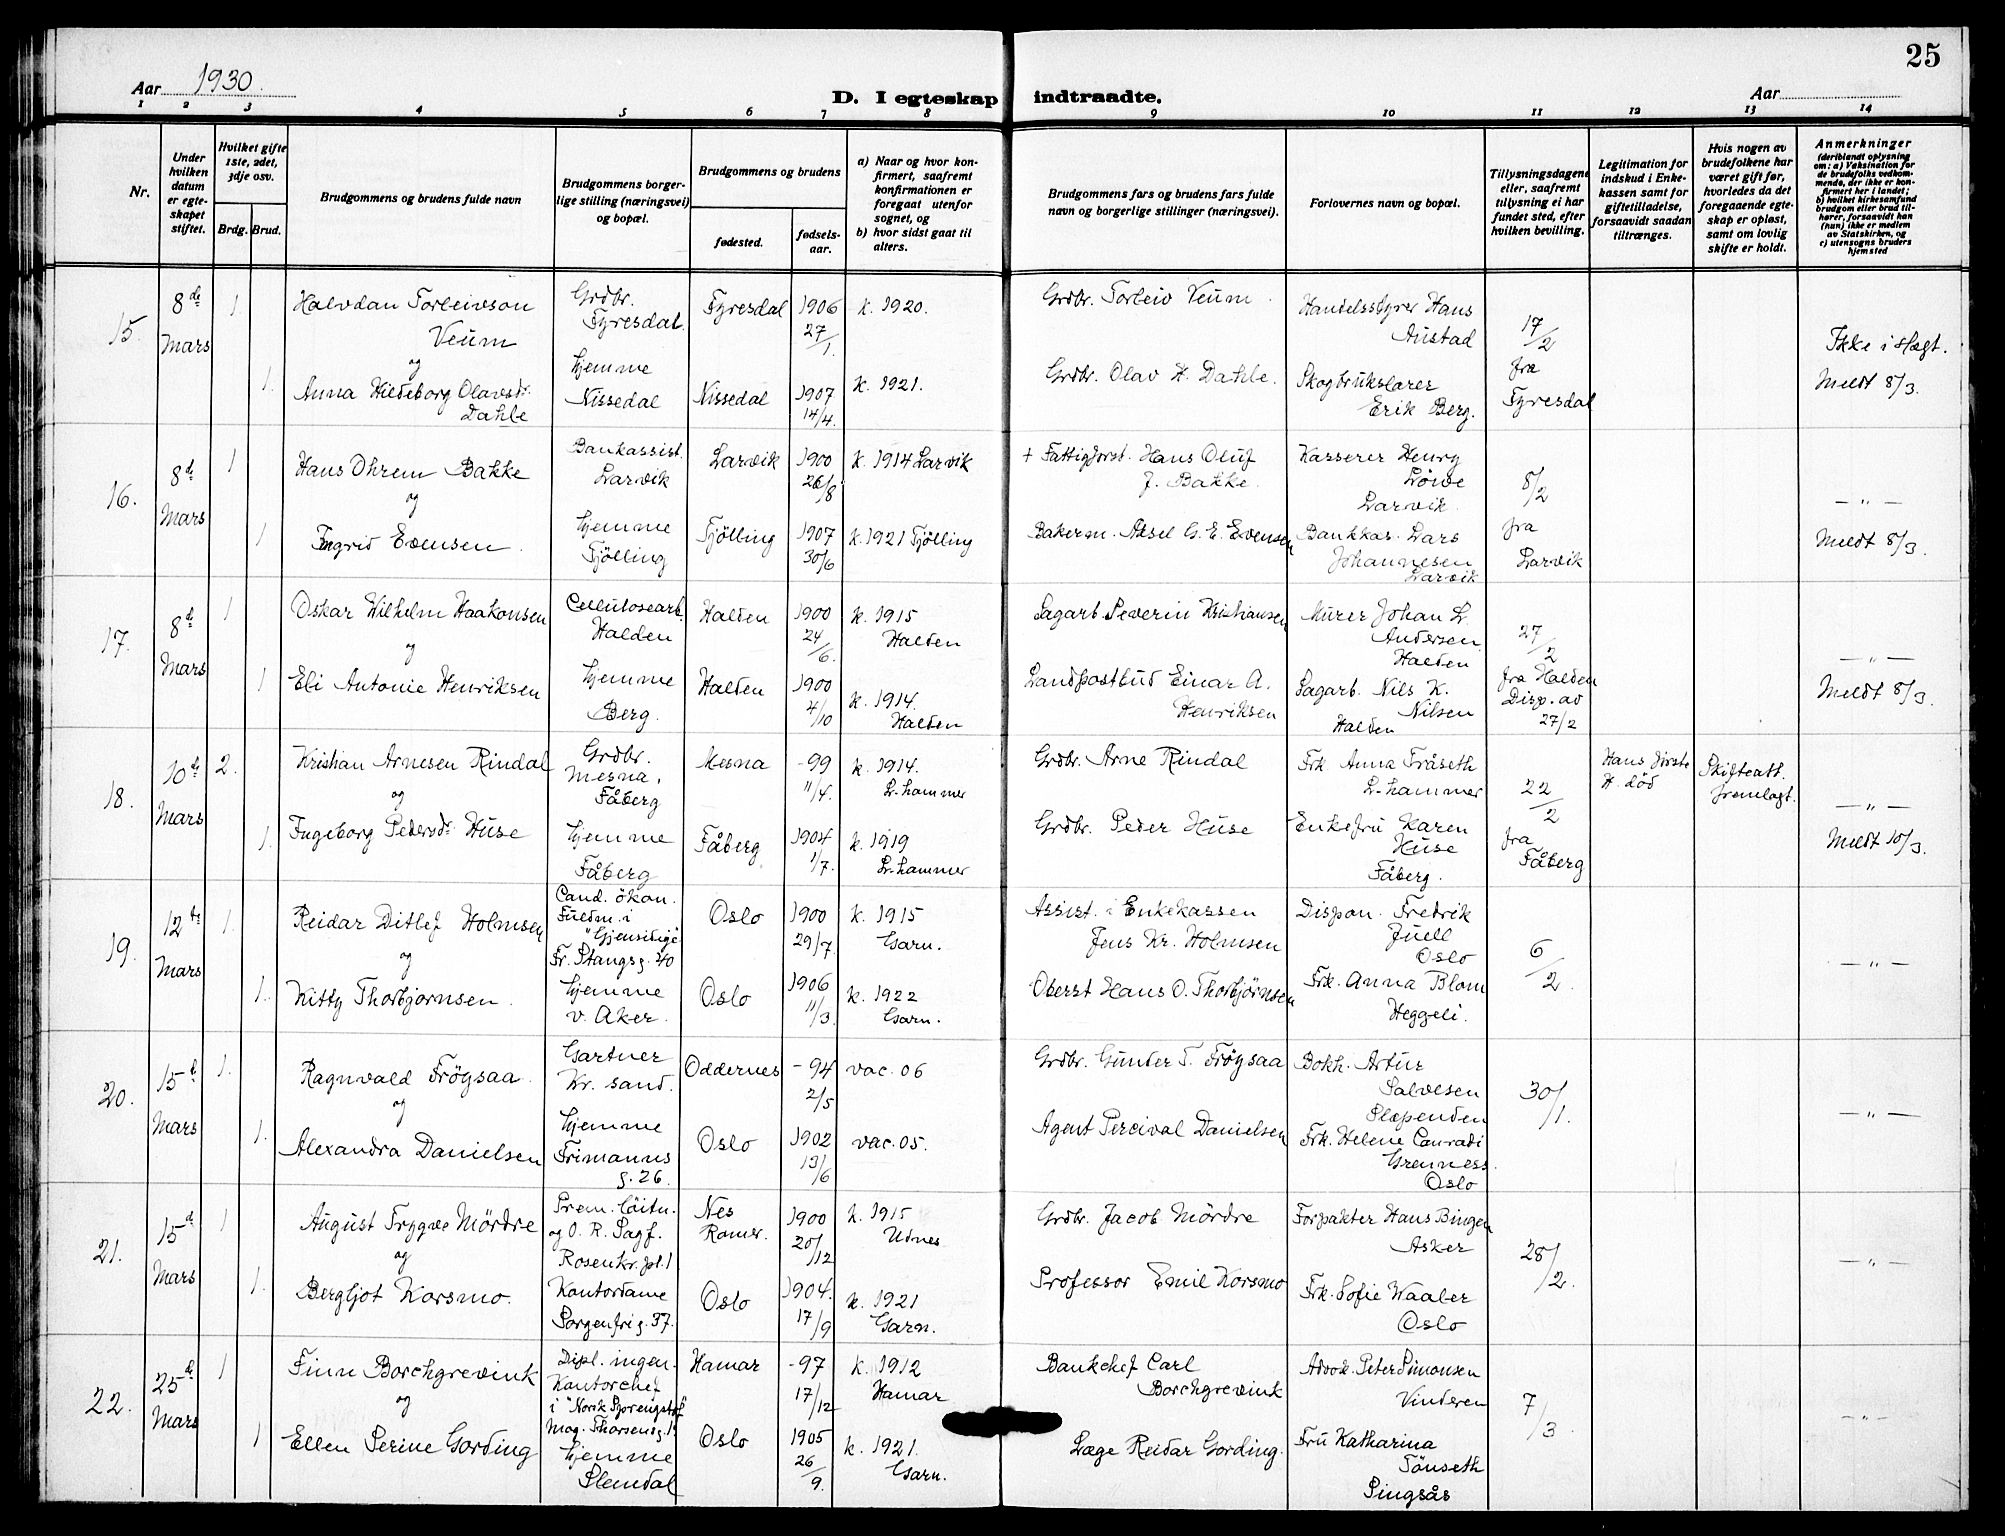 25
Aar 1930.
D. I egteskap indtraadte.
Aar
1 2 3 4 5 6 7 8 9 10 11 12 13 14
Nr.
Under hvilken datum er egteskapet stiftet.
Hvilket gifte 1ste, 2det, 3dje osv.
Brdg. Brud.
Brudgommens og brudens fulde navn
Brudgommens borgerlige stilling (næringsvei) og bopæl.
Brudgommens og brudens
fødested.
fødselsaar.
a) Naar og hvor konfirmert, saafremt konfirmationen er foregaat utenfor sognet, og
b) hvor sidst gaat til alters.
Brudgommens fars og brudens fars fulde navn og borgerlige stillinger (næringsvei).
Forlovernes navn og bopæl.
Tillysningsdagene eller, saafremt tillysning ei har fundet sted, efter hvilken bevilling.
Legitimation for indskud i Enkekassen samt for giftetilladelse, forsaavidt saadan tiltrænges.
Hvis nogen av brudefolkene har været gift før, hvorledes da det foregaaende egteskap er opløst, samt om lovlig skifte er holdt.
Anmerkninger (deriblandt oplysning om: a) Vaksination for de brudefolks vedkommende, der ikke er konfirmert her i landet; b) hvilket kirkesamfund brudgom eller brud tilhører, forsaavidt han (hun) ikke er medlem av Statskirken, og c) utensogns bruders hjemsted
15. 8de Mars 1 Halvdan Torleivson Veum Grdbr. Fyresdal Fyresdal 1906 27/1. k. 1920. Grdbr. Torleiv Veum. Handelsstyrer Hans Austad 17/2 fra Fyresdal Ikke i Hægt.
og
1. Anna Hildeborg Olavsdr. Dahle hjemme Nissedal Nissedal 1907 14/4. k. 1921. Grdbr. Olav H. Dahle. Skogbrukslærer Erik Berg. Meldt 8/3.
16. 8de Mars 1 Hans Ohrem Bakke Bankassist. Larvik Larvik 1900 26/8 k. 1914 Larvik + Fattigforst. Hans Oluf J. Bakke. Kasserer Henry Löwe Larvik. 8/2 fra Larvik — " —
og
1 Ingrid Evensen. hjemme Tjölling Tjölling 1907 30/6 k. 1921 Tjölling Bakerm. Aksel G. E. Evensen Bankkas. Lars Johannesen Larvik Meldt 8/3.
17. 8de Mars 1 Oskar Wilhelm Haakonsen Cellulosearb. Halden Halden 1900 24/6. k. 1915 Halden Sagarb. Severin Kristiansen Murer Johan L. Andersen Halden 27/2 fra Halden Disp. av 27/2 — " —
og
1 Eli Antonie Henriksen hjemme Berg. Halden 1900 4/10 k. 1914. Halden Landpostbud Einar A. Henriksen Sagarb. Nils K. Nilsen Halden Meldt 8/3.
18. 10de Mars 2. Kristian Arnesen Rindal Grdbr. Mesna, Fåberg Mesna -99 11/4. k. 1914. Lr-hammer Grdbr. Arne Rindal Frk. Anna Tråseth L-hammer 22/2 fra Fåberg Hans förste H. död Skifteatt. fremlagt. — " —
og
1. Ingeborg Pedersdr. Huse hjemme Fåberg Fåberg 1904 1/7. k. 1919 Lr-hammer Grdbr. Peder Huse Enkefru Karen Huse Fåberg. Meldt 10/3.
19. 12te Mars 1. Reidar Ditlef Holmsen Cand. ökon. Fuldm. i "Gjensidige" Fr. Stangsg. 40 Oslo 1900 29/7 k. 1915 Garn. Assist. i Enkekassen Jens Kr. Holmsen Dispon. Fredrik Juell Oslo 6/2. — " —
og
1. Kitty Thorbjornsen. hjemme v. Aker. Oslo 1906 11/3. k. 1922 Garn. Oberst Hans O. Thorbjörnsen Frk. Anna Blom Heggeli.
20. 15de Mars 1. Ragnvald Frögsaa. Gartner Kr. sand. Oddernes -94 2/5 vac. 06 Grdbr. Gunder T. Frögsaa Bokh. Artur Salvesen Slependen 30/1. — " —
og
1. Alexandra Danielsen hjemme Frimanns g. 26. Oslo 1902 13/6 vac. 05. Agent Percival Danielsen Frk. Helene Conradi Grenness. Oslo
21. 15de Mars 1 August Trygve Mördre Prem. löitn. og O. R. Sagf. Rosenkr. pl. 1 Nes Romer. 1900 20/12 k. 1915 Udnes Grdbr. Jacob Mördre Forpakter Hans Bingen Asker 28/2. — " —
og
1. Bergljot Korsmo. Kontordame Sorgenfrig. 37. Oslo 1904. 17/9 k. 1921 Garn. Professor Emil Korsmo Frk. Sofie Waaler Oslo
22. 25de Mars 1 Finn Borchgrevink Dipl. ingen. Kontorchef i "Norsk Sprengstof" Mog. Thorsensg. 1 Hamar -97 17/12 k. 1912 Hamar Bankchef Carl Borchgrevink Advok. Peter Simonsen Vinderen 7/3. — " —
og
1 Ellen Serine Gording hjemme Slemdal Oslo 1905 26/9. k. 1921. Garn. Læge Reidar Gording. Fru Katharina Tönseth Singsås